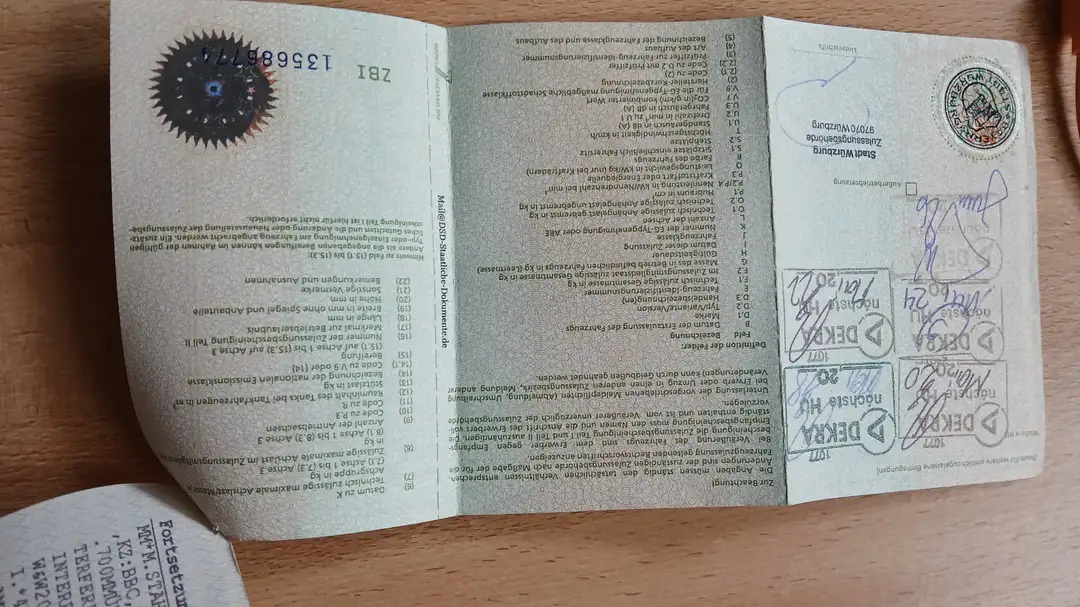 (Raum für weitere amtlich zugelassene Eintragungen)
1077
DEKRA
nächste HU
Mai 20
1077
DEKRA
nächste HU
20
DEKRA
nächste HU
24
20
1077
DEKRA
nächste HU
20
22
DEKRA
Außerbetriebsetzung
Stadt Würzburg
Zulassungsbehörde
97070 Würzburg
Unterschrift
Zur Beachtung!
Die Angaben müssen ständig den tatsächlichen Verhältnissen entsprechen,
Änderungen sind der zuständigen Zulassungsbehörde nach Maßgabe der für die
Fahrzeugzulassung geltenden Rechtsvorschriften anzuzeigen.
Bei Veräußerung des Fahrzeugs sind dem Erwerber gegen Empfangs-
bescheinigung die Zulassungsbescheinigung Teil I und Teil II auszuhändigen. Die
Empfangsbescheinigung muss den Namen und die Anschrift des Erwerbers voll-
ständig enthalten und ist vom Veräußerer unverzüglich der Zulassungsbehörde
vorzulegen.
Unterlassung der vorgeschriebenen Meldepflichten (Abmeldung, Umschreibung
bei Erwerb oder Umzug in einen anderen Zulassungsbezirk, Meldung anderer
Veränderungen) kann durch Geldbußen geahndet werden.
Definition der Felder:
Feld Bezeichnung
B Datum der Erstzulassung des Fahrzeugs
D.1 Marke
D.2 Typ/Variante/Version
D.3 Handelsbezeichnung(en)
E Fahrzeug-Identifizierungsnummer
F.1 Technisch zulässige Gesamtmasse in kg
F.2 Im Zulassungsmitgliedstaat zulässige Gesamtmasse in kg
G Masse des in Betrieb befindlichen Fahrzeugs in kg (Leermasse)
H Gültigkeitsdauer
I Datum dieser Zulassung
J Fahrzeugklasse
K Nummer der EG-Typgenehmigung oder ABE
L Anzahl der Achsen
O.1 Technisch zulässige Anhängelast gebremst in kg
O.2 Technisch zulässige Anhängelast ungebremst in kg
P.1 Hubraum in cm³
P.2/P.4 Nennleistung in kW/Nenndrehzahl bei min⁻¹
P.3 Kraftstoffart oder Energiequelle
Q Leistungsgewicht in kW/kg (nur bei Krafträdern)
R Farbe des Fahrzeugs
S.1 Sitzplätze einschließlich Fahrersitz
S.2 Stehplätze
T Höchstgeschwindigkeit in km/h
U.1 Standgeräusch in dB (A)
U.2 Drehzahl in min⁻¹ zu U.1
U.3 Fahrgeräusch in dB (A)
V.7 CO₂ (in g/km) kombinierter Wert
V.9 Für die EG-Typgenehmigung maßgebliche Schadstoffklasse
(2) Hersteller-Kurzbezeichnung
(2.1) Code zu (2)
(2.2) Code zu D.2 mit Prüfziffer
(3) Prüfziffer zur Fahrzeug-Identifizierungsnummer
(4) Art des Aufbaus
(5) Bezeichnung der Fahrzeugklasse und des Aufbaus
Mail@DSD-Staatliche-Dokumente.de
(6) Datum zu K
(7) Technisch zulässige maximale Achslast/Masse
Achsgruppe in kg
(7.1) Achse 1 bis (7.3) Achse 3
(8) Zulässige maximale Achslast im Zulassungsmitgliedstaat
in kg
(8.1) Achse 1 bis (8.3) Achse 3
(9) Anzahl der Antriebsachsen
(10) Code zu P.3
(11) Code zu R
(12) Rauminhalt des Tanks bei Tankfahrzeugen in m³
(13) Stützlast in kg
(14) Bezeichnung der nationalen Emissionsklasse
(14.1) Code zu V.9 oder (14)
(15) Bereifung
(15.1) auf Achse 1 bis (15.3) auf Achse 3
(16) Nummer der Zulassungsbescheinigung Teil II
(17) Merkmal zur Betriebserlaubnis
(18) Länge in mm
(19) Breite in mm ohne Spiegel und Anbauteile
(20) Höhe in mm
(21) Sonstige Vermerke
(22) Bemerkungen und Ausnahmen
Hinweis zu Feld (15.1) bis (15.3):
Andere als die angegebenen Bereifungen können im Rahmen der gültigen
Typ- oder Einzelgenehmigung am Fahrzeug angebracht werden. Ein zusätz-
liches Gutachten und die Änderung oder Neuausstellung der Zulassungsbe-
scheinigung Teil I ist hierfür nicht erforderlich.
ZBI 135686774
Fortsetzun
MM*M.STAH
,KZ:BBC,
.700MMÜ
TERFER
INTERF
W&W20